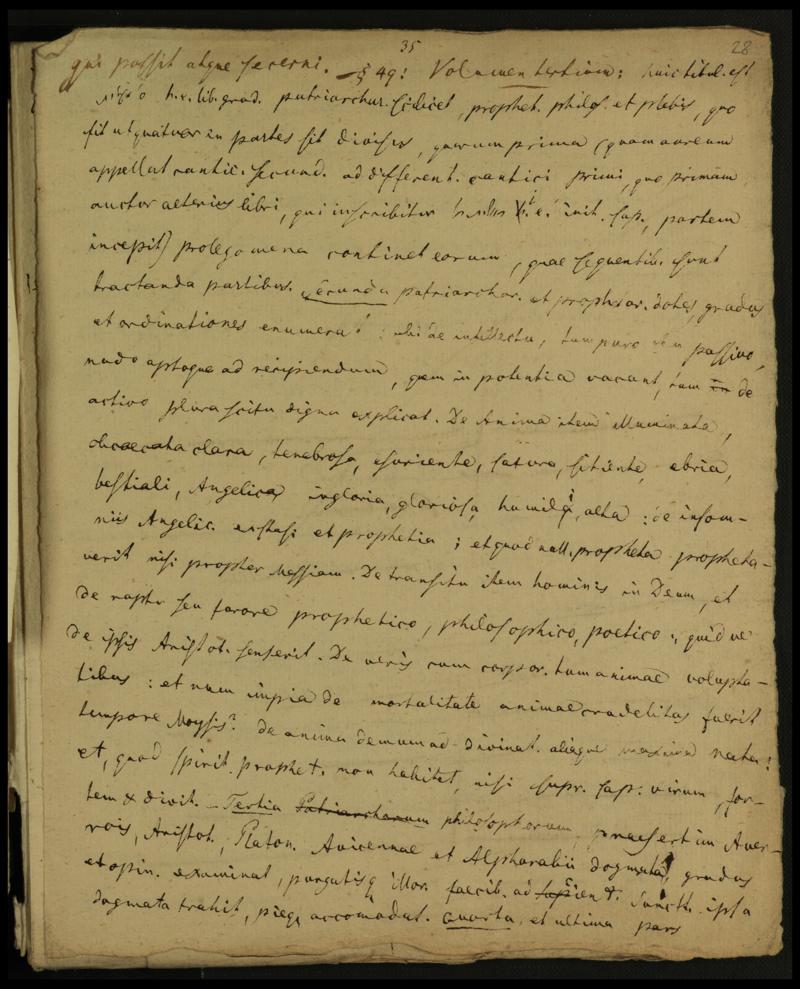 35 28
qui possit atque secerni. — § 49: Volumen tertium: huic titul. est
h. e. lib. grad. patriarchar. scilicet, prophet. philos. et plebis, quo
fit ut quatuor in partes sit divisus, quarum prima (quam aureum
appellat cantic. secund. ad different. cantici primi, quo primam
auctor alterius libri, qui inscribitur i. e. init. sap., partem
incepit) prolegomena continet eorum, quae sequentib. sunt
tractanda partibus. Secunda patriarchar. et prophetar. dotes, gradus
et ordinationes enumerat: intellectu, tum puro passivo,
nudo aptoque ad recipiendum, quem in potentia vocant, tum in de
activo plura scitu digna explicat. De Anima item illuminata,
obcaecata clara, tenebrosa, esuriente, satura, sitiente, ebria,
bestiali, Angelica, ingloria, gloriosa, humili, alta: de insom-
niis Angelic. exstasi et prophetia; et quod null. propheta propheta-
verit nisi propter Messiam. De transitu item hominis in Deum, et
de raptu seu furore prophetico, philosophico, poetico, quidve
de ipsis Aristot. senserit. De veris cum corpor. tum animae volupta-
tibus: et num impia de mortalitate animae crudelitas fuerit
tempore Moysis? de anima demum ad divinat. aliaque maxima nata:
et, quod spirit. prophet. non habitet, nisi supr. sap. virum, for-
tem & divit. — Tertia Patriarcharum philosophorum, praesertim Aver-
rois, Aristot., Platon. Avicennae et Alpharabii dogmata, gradus
et opin. examinat, purgatisq illor. faecib. ad sapient. sanctt. ipsa
dogmata trahit, pieq accomodat. Quarta, et ultima pars